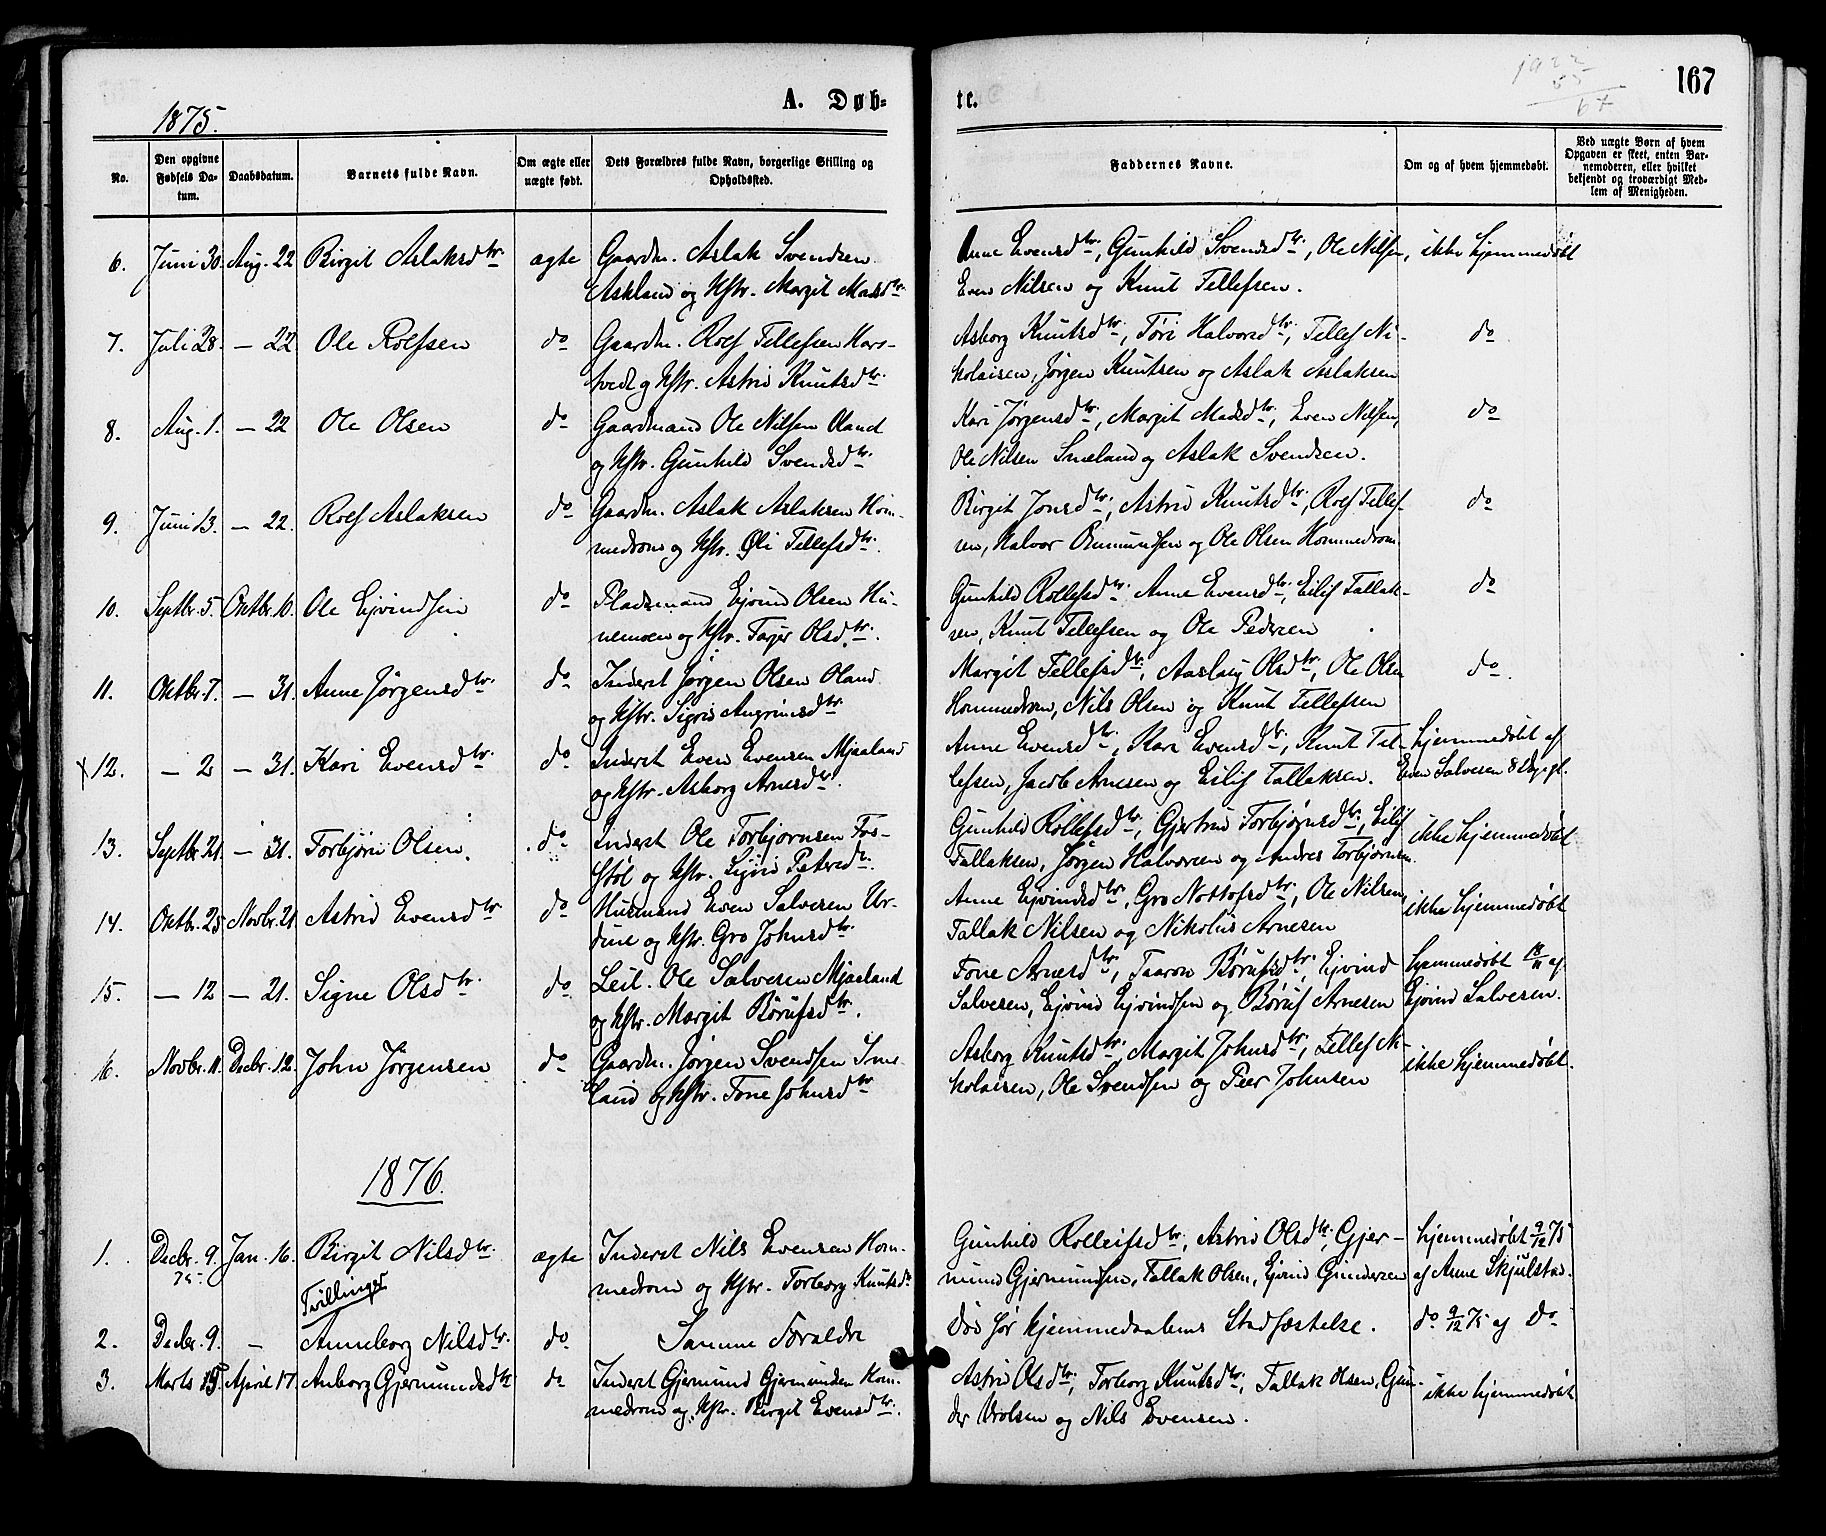 1875.
A. Døb-
te.
1922
55
67
167
No.
Den opgivne Fødsels Da-tum.
Daabsdatum.
Barnets fulde Navn.
Om ægte eller uægte født.
Dets Forældres fulde Navn, borgerlige Stilling og Opholdssted.
Faddernes Navne.
Om og af hvem hjemmedøbt.
Ved uægte Børn af hvem Opgaven er skeet, enten Bar-nemoderen, eller hvilket bekjendt og troværdigt Med-lem af Menigheden.
6. Juni 30. Aug. 22 Birgit Aslaksdtr. ægte Gaardm. Aslak Svendsen Anne Evensdtr., Gunhild Svendsdtr., Ole Nilsen, ikke hjemmedøbt
Askland og Hstr. Margit Madsdtr. Even Nilsen og Knut Tellefsen.
7. Juli 28. — 22 Ole Rolfsen do Gaardm. Rolf Tellefsen Hors- Asborg Knutsdtr., Tøri Halvorsdtr., Tellef Ni- do
tvedt og Hstr. Astrid Knutsdtr. kolaisen, Jørgen Knutsen og Aslak Aslaksen
8. Aug. 1. — 22 Ole Olsen do Gaardmand Ole Nilsen Oland Kari Jørgensdtr., Margit Madsdtr., Even Nilsen, do
og Hstr. Gunhild Svendsdtr. Ole Nilsen Smeland og Aslak Svendsen.
9. Juni 13. — 22. Rolf Aslaksen do Gaardm. Aslak Aslaksen Hom- Birgit Jonsdtr., Astrid Knutsdtr., Rolf Tellef- do
medrom og Hstr. Oli Tellefsdtr. sen, Halvor Omundsen og Ole Olsen Hommedrom
10. Septbr. 5. Oktbr. 10. Ole Ejvindsen do Pladsmand Ejvind Olsen Hu- Gunhild Rollefsdtr. Anne Evensdtr., Eilif Tallak- do
nemoen og Hstr. Tager Olsdtr. sen, Knut Tellefsen og Ole Pedersen
11. Oktbr. 7. — 31. Anne Jørgensdtr. do Inderst Jørgen Olsen Oland Margit Tellefsdtr., Aaslaug Olsdtr., Ole Olsen do
og Hstr. Sigrid Angrimsdtr. Hommedrom, Nils Olsen og Knut Tellefsen
x12. — 2 — 31. Kari Evensdtr. do Inderst Even Evensen Mjaaland Anne Evensdtr., Kari Evensdtr., Knut Tel- hjemmedøbt af
og Hstr. Asborg Arnesdtr. lefsen, Jacob Arnesen og Eilif Tallaksen. Even Salvesen 8 Dg. gl.
13. Septbr. 21. — 31. Torbjørn Olsen. do Inderst Ole Torbjørnsen Fos- Gunhild Rollefsdtr., Gjertrud Torbjørnsdtr., Eilif ikke hjemmedøbt
støl og Hstr. Signe Petersdtr. Tallaksen, Jørgen Halvorsen og Andres Torbjørnsen.
14. Oktbr. 25 Novbr. 21 Astrid Evensdtr. do Husmand Even Salvesen Ur- Anne Ejvindsdtr., Gro Nottofsdtr., Ole Nilsen, ikke hjemmedøbt
dine og Hstr. Gro Johnsdtr. Tallak Nilsen og Nikolus Arnesen
15. — 12 — 21. Signe Olsdtr. do Leil. Ole Salvesen Mjaaland Tone Arnesdtr., Taaron Børufsdtr., Ejvind hjemmedøbt af
og Hstr. Margit Børufsdtr. Salvesen, Ejvind Ejvindsen og Børuf Arnesen Ejvind Salvesen.
16. Novbr. 11. Decbr. 12. John Jørgensen do Gaardm. Jørgen Svendsen Sme- Asborg Knutsdtr., Margit Johnsdtr., Tellef Ni- ikke hjemmedøbt.
land og Hstr. Tone Johnsdtr. kolaisen, Ole Svendsen og Peer Johnsen
1876.
1. Decbr. 9. 75 Jan. 16. Birgit Nilsdtr. ægte Inderst Nils Evensen Hom- Gunhild Rolleifsdtr., Astrid Olsdtr., Gjer- hjemmedøbt 9/12 75
Tvillinger medrom og Hstr. Torborg Knutsdtr. mund Gjermundsen, Tallak Olsen, Ejvind Gundersen af Anne Skjulstad.
2. Decbr. 9. — Anneborg Nilsdtr. do Samme Forældre Død før hjemmedaabens Stadfæstelse. do 9/12 75 af do
3. Marts 15 April 17. Anborg Gjermundsdtr. do Inderst Gjermund Gjermundsen Hom- Astrid Olsdtr., Torborg Knutsdtr., Tallak Olsen, Gun- ikke hjemmedøbt
medrom og Hstr. Birgit Evensdtr. der Olsen og Nils Evensen.